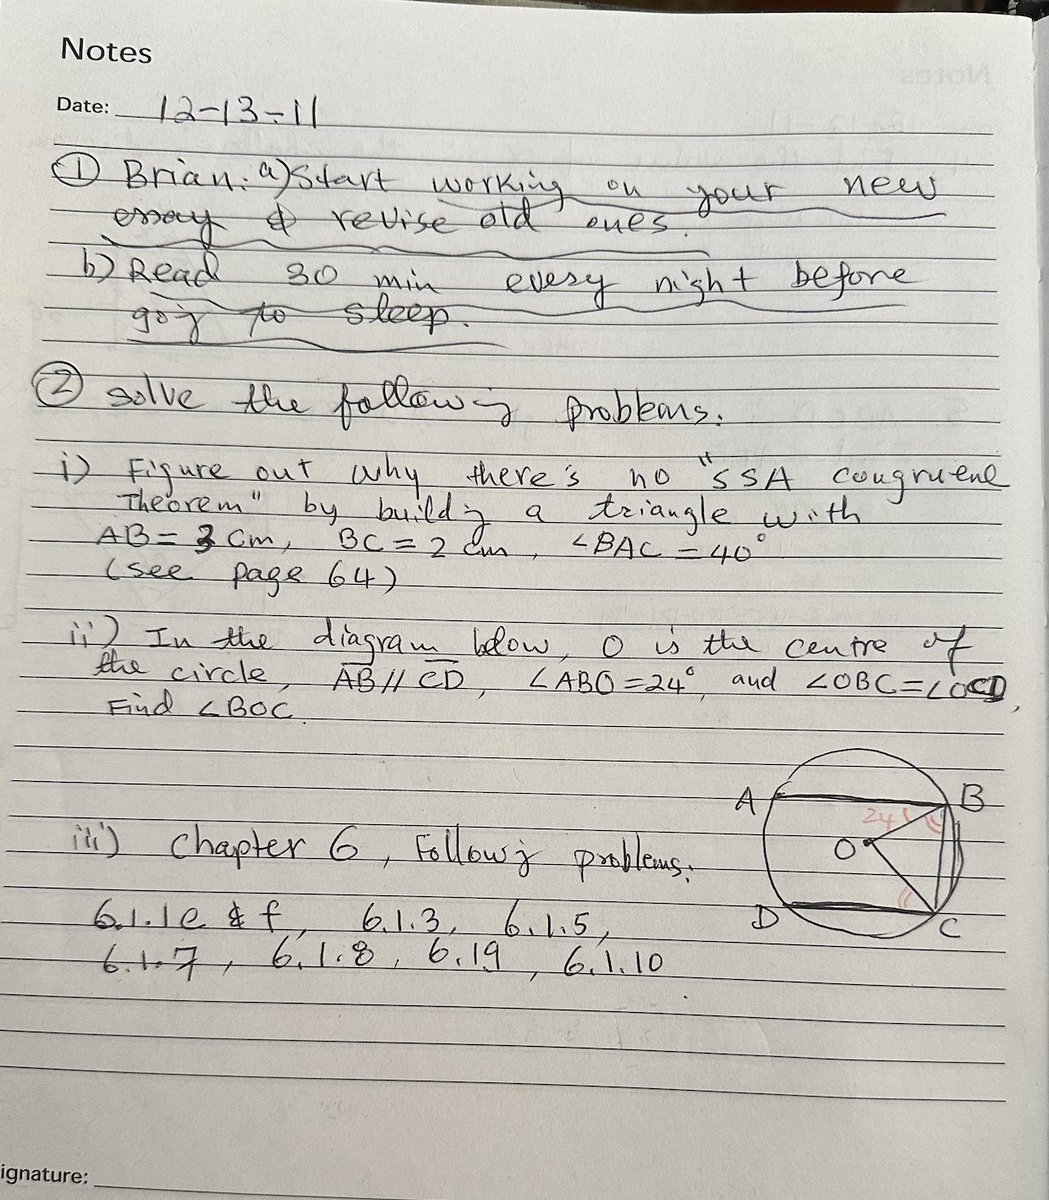 Notes
Date: 12-13-11
① Brian: a) Start working on your new
essay & revise old ones.
b) Read 30 min every night before
going to sleep.
② solve the following problems.
i) Figure out why there's no "SSA congruence
Theorem" by building a triangle with
AB = 3 cm, BC = 2 cm, ∠BAC = 40°
(see page 64)
ii) In the diagram below, O is the centre of
the circle, AB // CD, ∠ABO = 24°, and ∠OBC = ∠OCD,
Find ∠BOC.
A B
24
iii) Chapter 6, Following problems:
O
6.1.1e & f, 6.1.3, 6.1.5,
D C
6.1.7, 6.1.8, 6.19, 6.1.10
ignature: